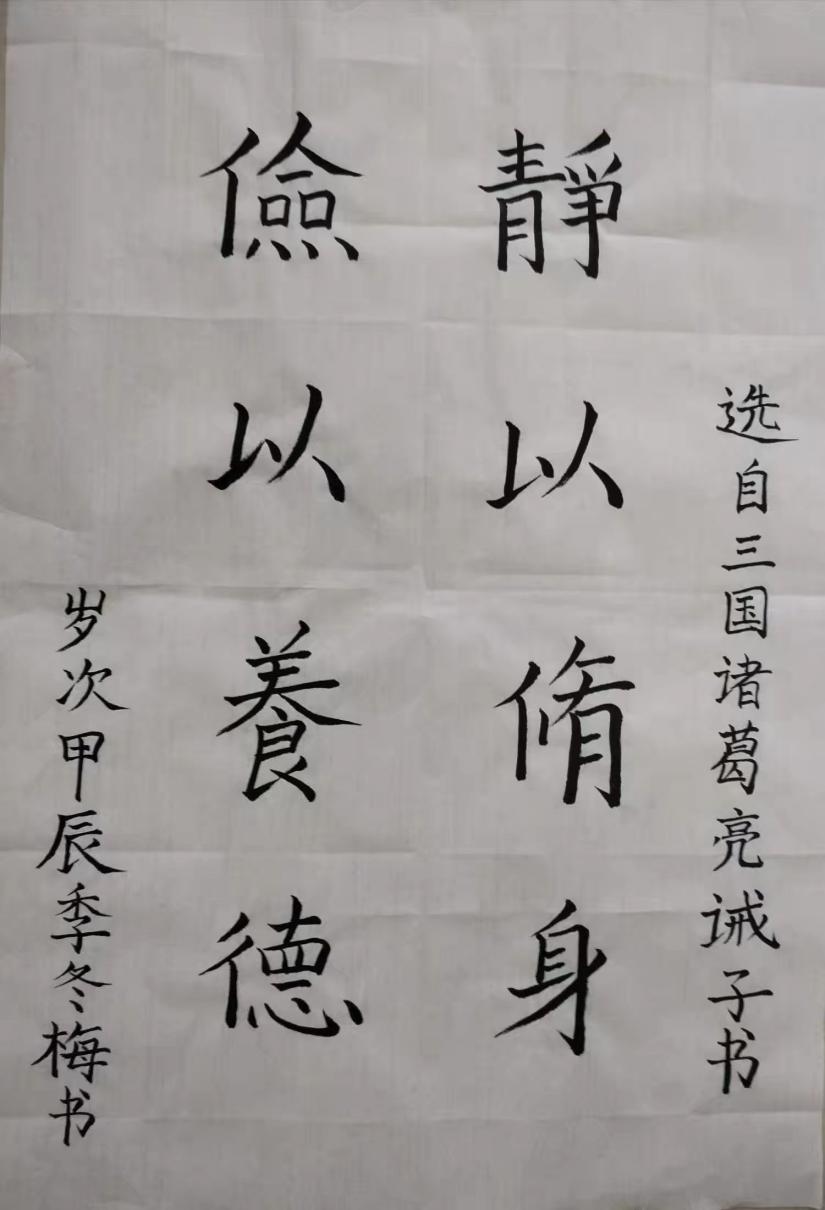 选自三国诸葛亮诫子书
靜以脩身
儉以養德
岁次甲辰季冬梅书